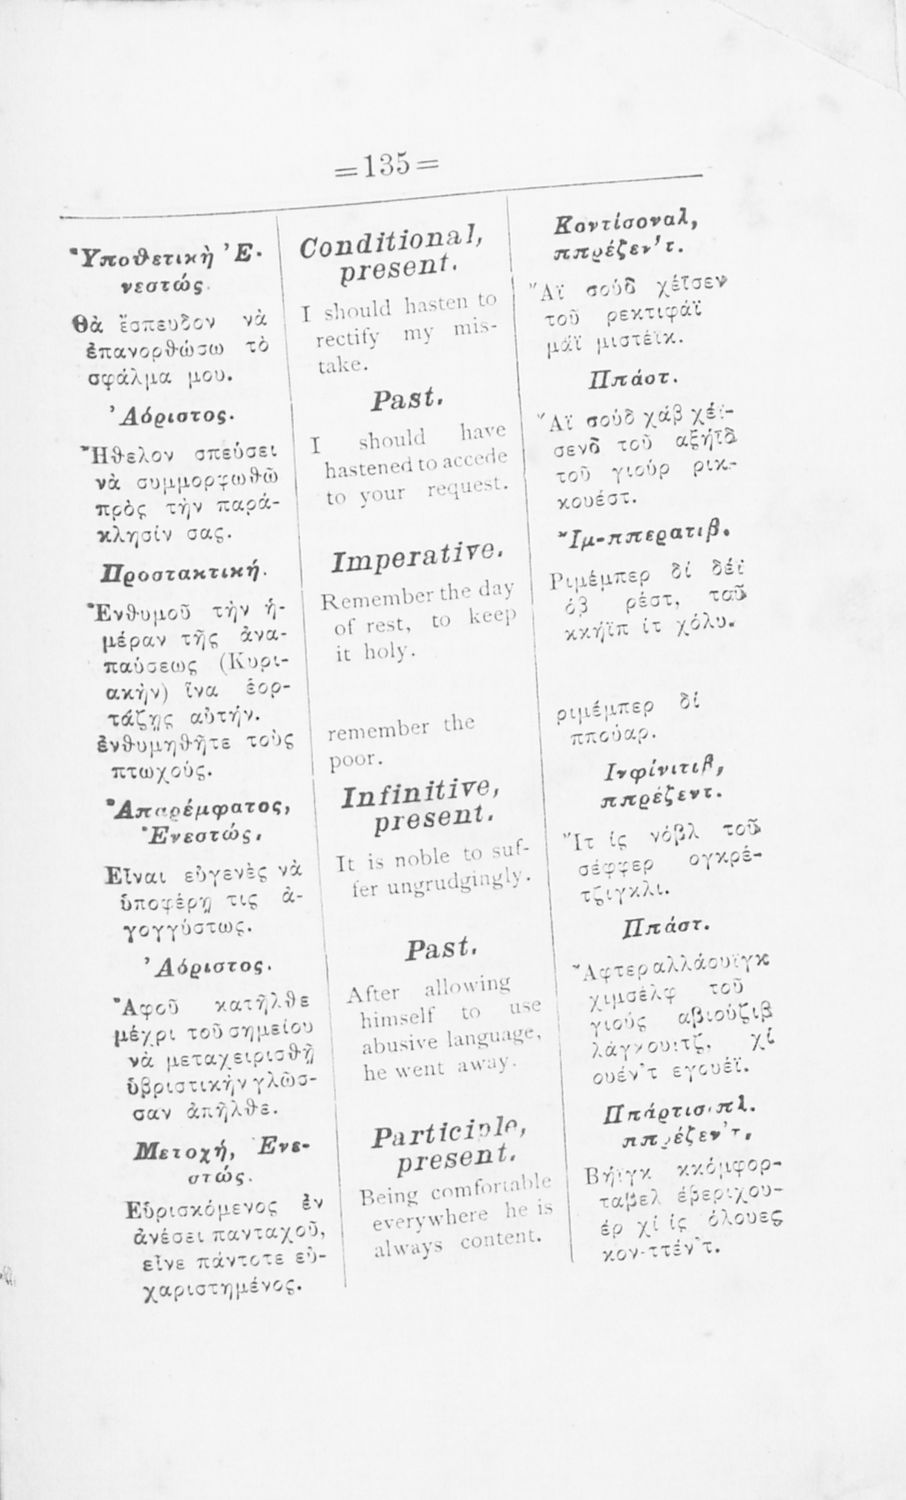 =135=
Ὑποθετικὴ Ἐ-
νεστώς.
Θὰ ἔσπευδον νὰ
ἐπανορθώσω τὸ
σφάλμα μου.
Ἀόριστος.
Ἤθελον σπεύσει
νὰ συμμορφωθῶ
πρὸς τὴν παρά-
κλησίν σας.
Προστακτική.
Ἐνθυμοῦ τὴν ἡ-
μέραν τῆς ἀνα-
παύσεως (Κυρι-
ακὴν) ἵνα ἑορ-
τάζῃς αὐτήν.
ἐνθυμηθῆτε τοὺς
πτωχούς.
Ἀπαρέμφατος,
Ἐνεστώς,
Εἶναι εὐγενὲς νὰ
ὑποφέρῃ τις ἀ-
γογγύστως.
Ἀόριστος.
Ἀφοῦ κατῆλθε
μέχρι τοῦ σημείου
νὰ μεταχειρισθῇ
ὑβριστικὴν γλῶσ-
σαν ἀπῆλθε.
Μετοχή, Ἐνε-
στώς.
Εὑρισκόμενος ἐν
ἀνέσει πανταχοῦ,
εἶνε πάντοτε εὐ-
χαριστημένος.
Conditional,
present.
I should hasten to
rectify my mis-
take.
Past.
I should have
hastened to accede
to your request.
Imperative.
Remember the day
of rest, to keep
it holy.
remember the
poor.
Infinitive,
present.
It is noble to suf-
fer ungrudgingly.
Past.
After allowing
himself to use
abusive language,
he went away.
Participle,
present.
Being comfortable
everywhere he is
always content.
Κοντίσοναλ,
ππρέζεν'τ.
Ἄϊ σοὺδ χέϊσεν
τοῦ ρεκτιφάϊ
μάϊ μιστέϊκ.
Ππάστ.
Ἄϊ σοὺδ χάβ χέϊ-
σενδ τοῦ αξήϊδ
τοῦ γιοὺρ ρικ-
κουέστ.
Ἴμ-ππερατιβ.
Ριμέμπερ δί δέϊ
ὀβ ρέστ, τοῦ
κκήϊπ ἱτ χόλυ.
ριμέμπερ δί
ππούαρ.
Ινφίνιτιβ,
ππρέζεντ.
Ἴτ ἱς νόβλ τοῦ
σέφφερ ογκρέ-
τζιγκλι.
Ππάστ.
Ἄφτερ αλλάουϊγκ
χιμσέλφ τοῦ
γιοὺς αβιούζιβ
λάγγουιτζ, χί
ουέν'τ εγουέϊ.
Ππάρτισιπλ.
ππρέζεν'τ,
Βήϊγκ κκόμφορ-
ταβελ έβεριχου-
έρ χί ἱς όλουες
κον-ττέν'τ.